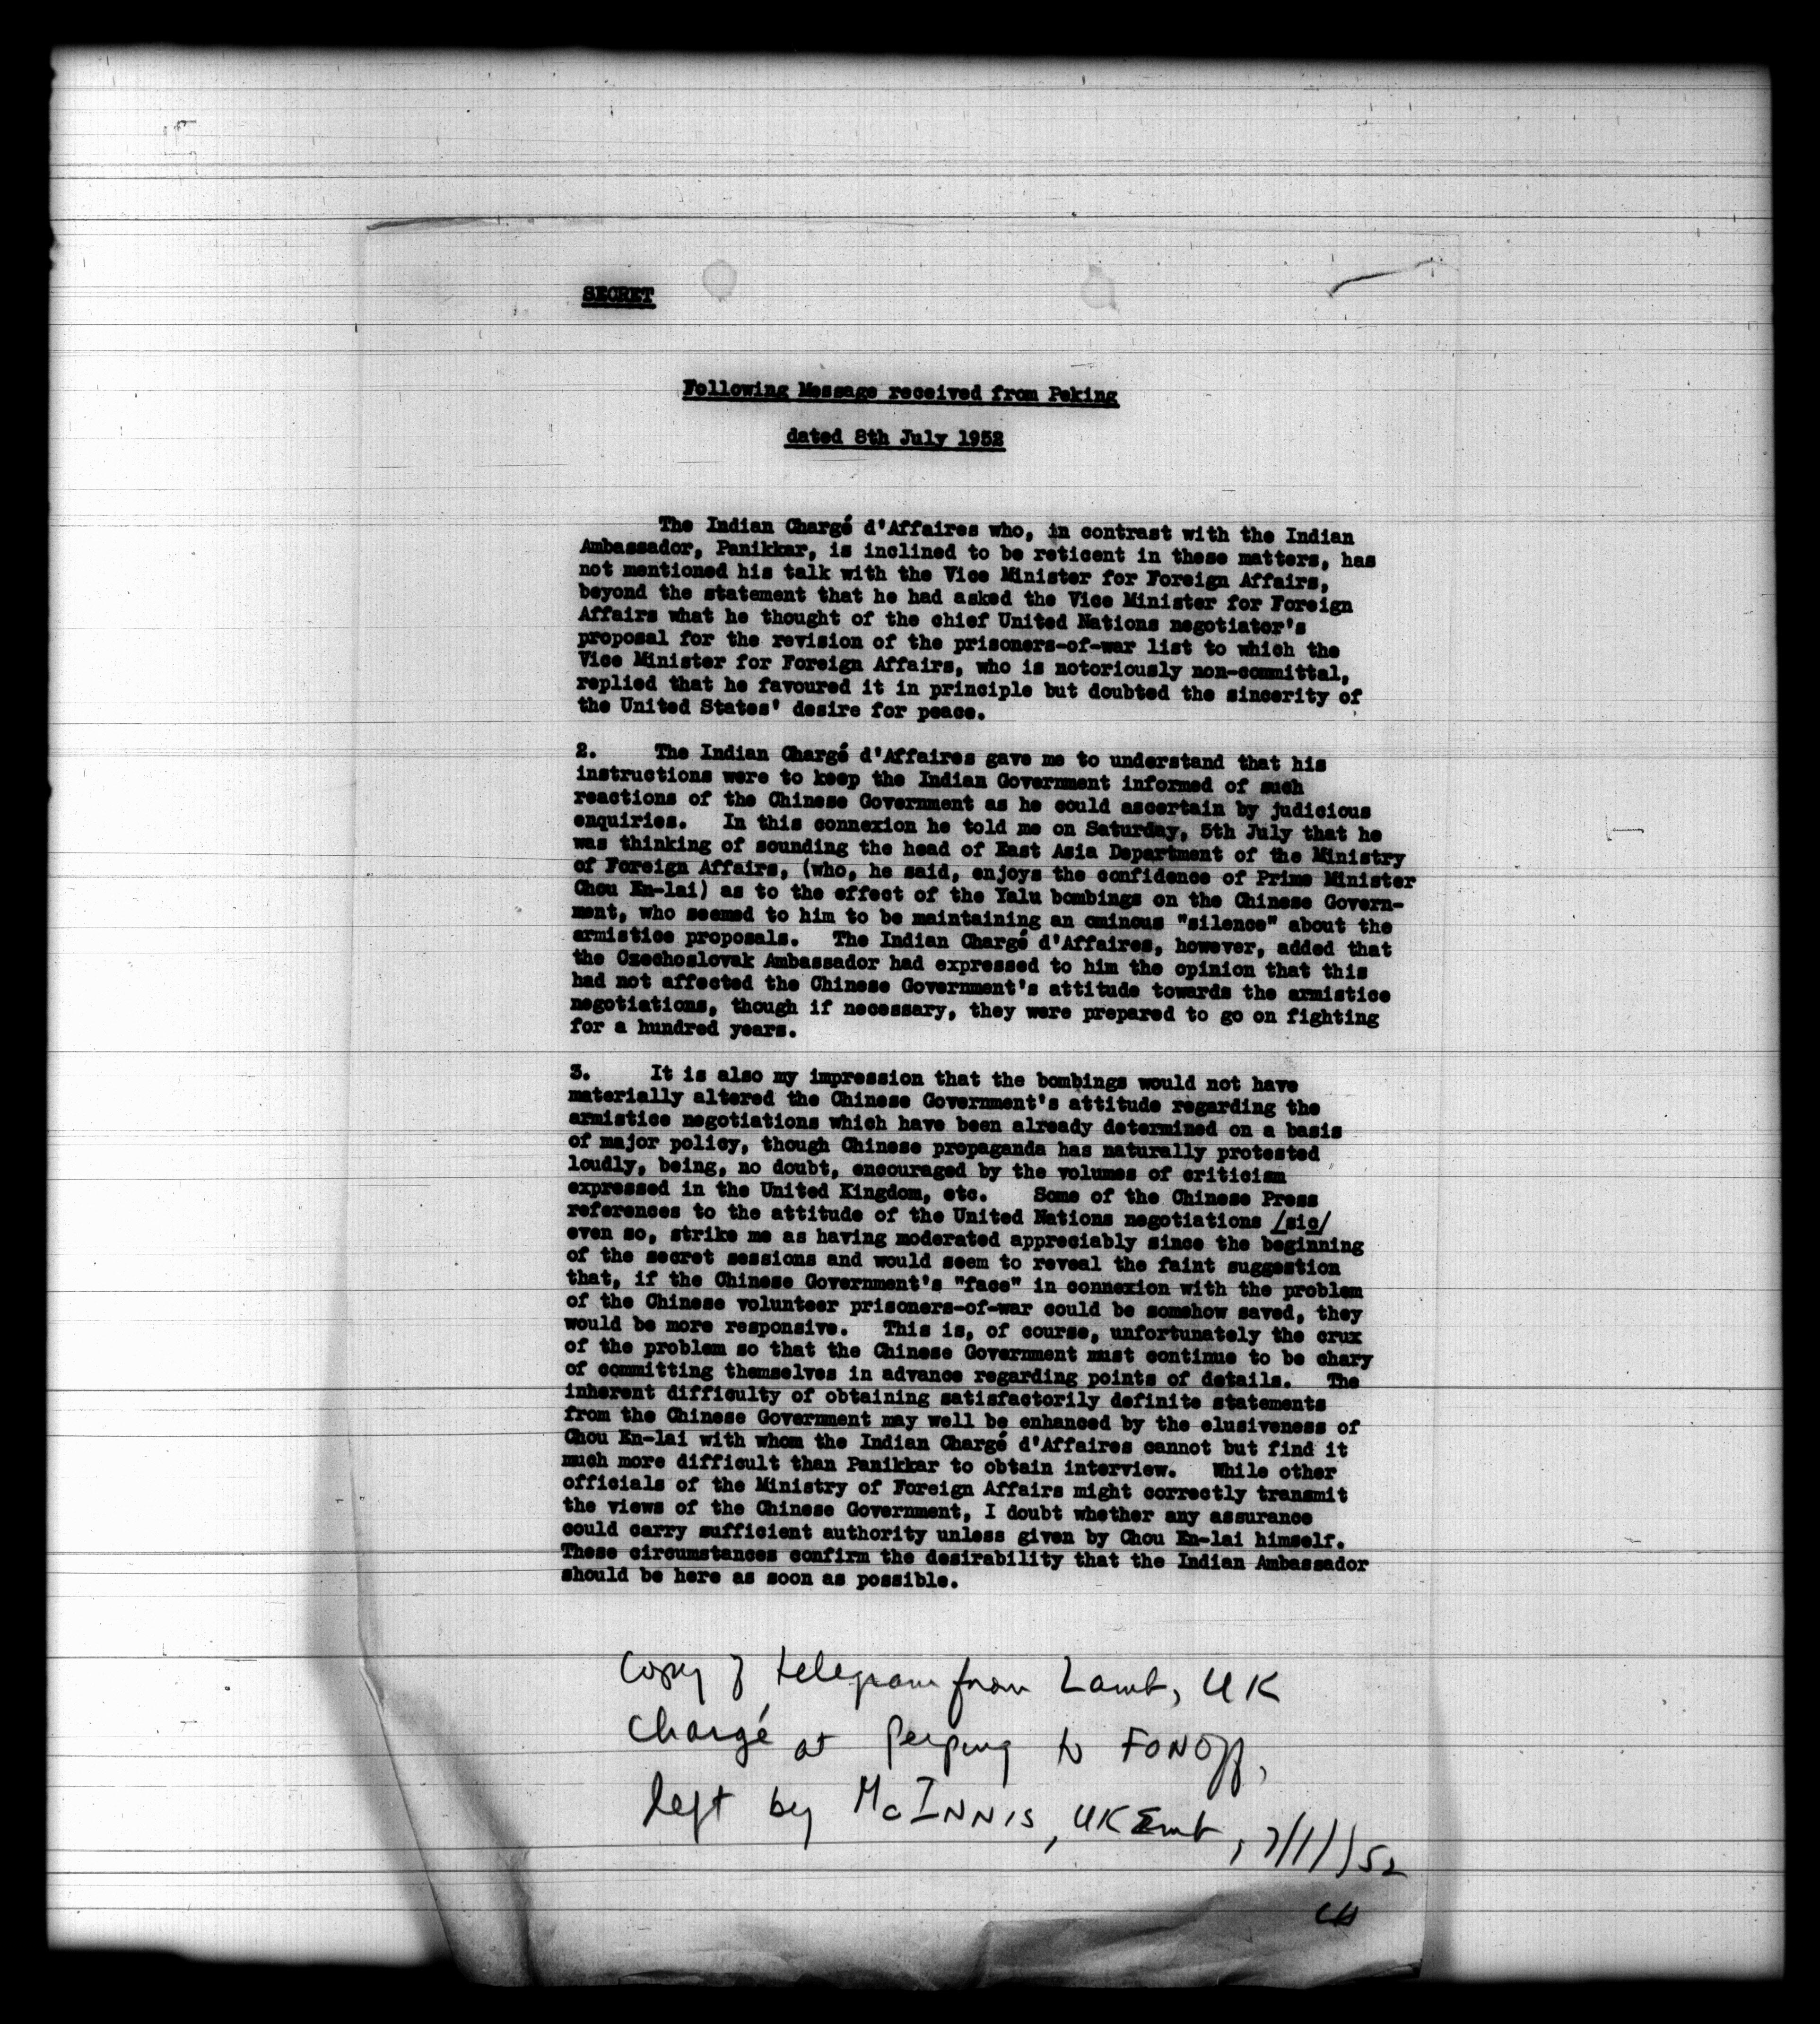 SECRET
Following Message received from Peking
dated 8th July 1952
The Indian Chargé d'Affaires who, in contrast with the Indian
Ambassador, Panikkar, is inclined to be reticent in these matters, has
not mentioned his talk with the Vice Minister for Foreign Affairs,
beyond the statement that he had asked the Vice Minister for Foreign
Affairs what he thought of the chief United Nations negotiator's
proposal for the revision of the prisoners-of-war list to which the
Vice Minister for Foreign Affairs, who is notoriously non-committal,
replied that he favoured it in principle but doubted the sincerity of
the United States' desire for peace.
2. The Indian Chargé d'Affaires gave me to understand that his
instructions were to keep the Indian Government informed of such
reactions of the Chinese Government as he could ascertain by judicious
enquiries. In this connexion he told me on Saturday, 5th July that he
was thinking of sounding the head of East Asia Department of the Ministry
of Foreign Affairs, (who, he said, enjoys the confidence of Prime Minister
Chou En-lai) as to the effect of the Yalu bombings on the Chinese Govern-
ment, who seemed to him to be maintaining an ominous "silence" about the
armistice proposals. The Indian Chargé d'Affaires, however, added that
the Czechoslovak Ambassador had expressed to him the opinion that this
had not affected the Chinese Government's attitude towards the armistice
negotiations, though if necessary, they were prepared to go on fighting
for a hundred years.
3. It is also my impression that the bombings would not have
materially altered the Chinese Government's attitude regarding the
armistice negotiations which have been already determined on a basis
of major policy, though Chinese propaganda has naturally protested
loudly, being, no doubt, encouraged by the volumes of criticism
expressed in the United Kingdom, etc. Some of the Chinese Press
references to the attitude of the United Nations negotiations /sic/
even so, strike me as having moderated appreciably since the beginning
of the secret sessions and would seem to reveal the faint suggestion
that, if the Chinese Government's "face" in connexion with the problem
of the Chinese volunteer prisoners-of-war could be somehow saved, they
would be more responsive. This is, of course, unfortunately the crux
of the problem so that the Chinese Government must continue to be chary
of committing themselves in advance regarding points of details. The
inherent difficulty of obtaining satisfactorily definite statements
from the Chinese Government may well be enhanced by the elusiveness of
Chou En-lai with whom the Indian Chargé d'Affaires cannot but find it
much more difficult than Panikkar to obtain interview. While other
officials of the Ministry of Foreign Affairs might correctly transmit
the views of the Chinese Government, I doubt whether any assurance
could carry sufficient authority unless given by Chou En-lai himself.
These circumstances confirm the desirability that the Indian Ambassador
should be here as soon as possible.
Copy of telegram from Lamb, UK
chargé at Peiping to FONOff,
left by McINNIS, UK Emb,